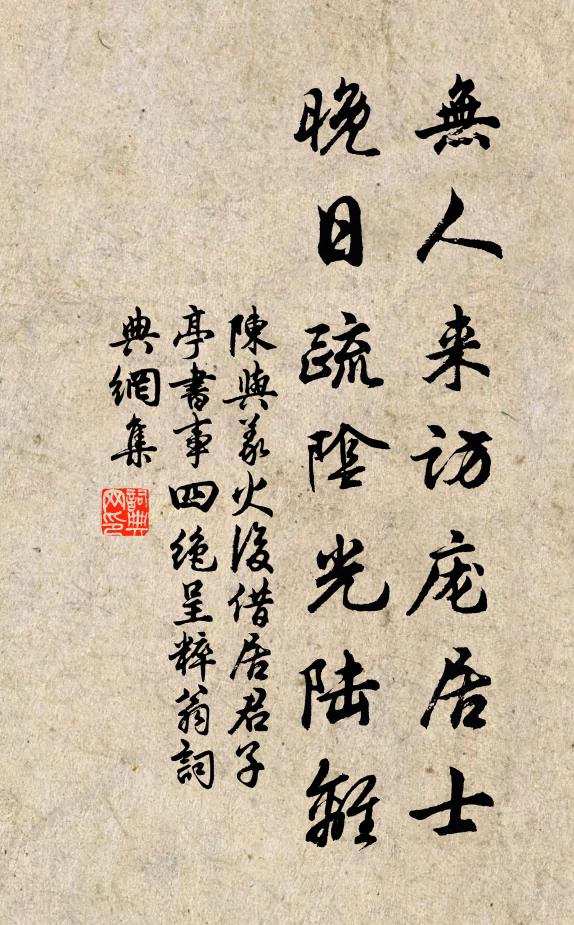 無人来訪庞居士
晚日疏陰光陆離
陳與義火後借居君子
亭書事四绝呈粹翁詞
典網集
詞典
网印